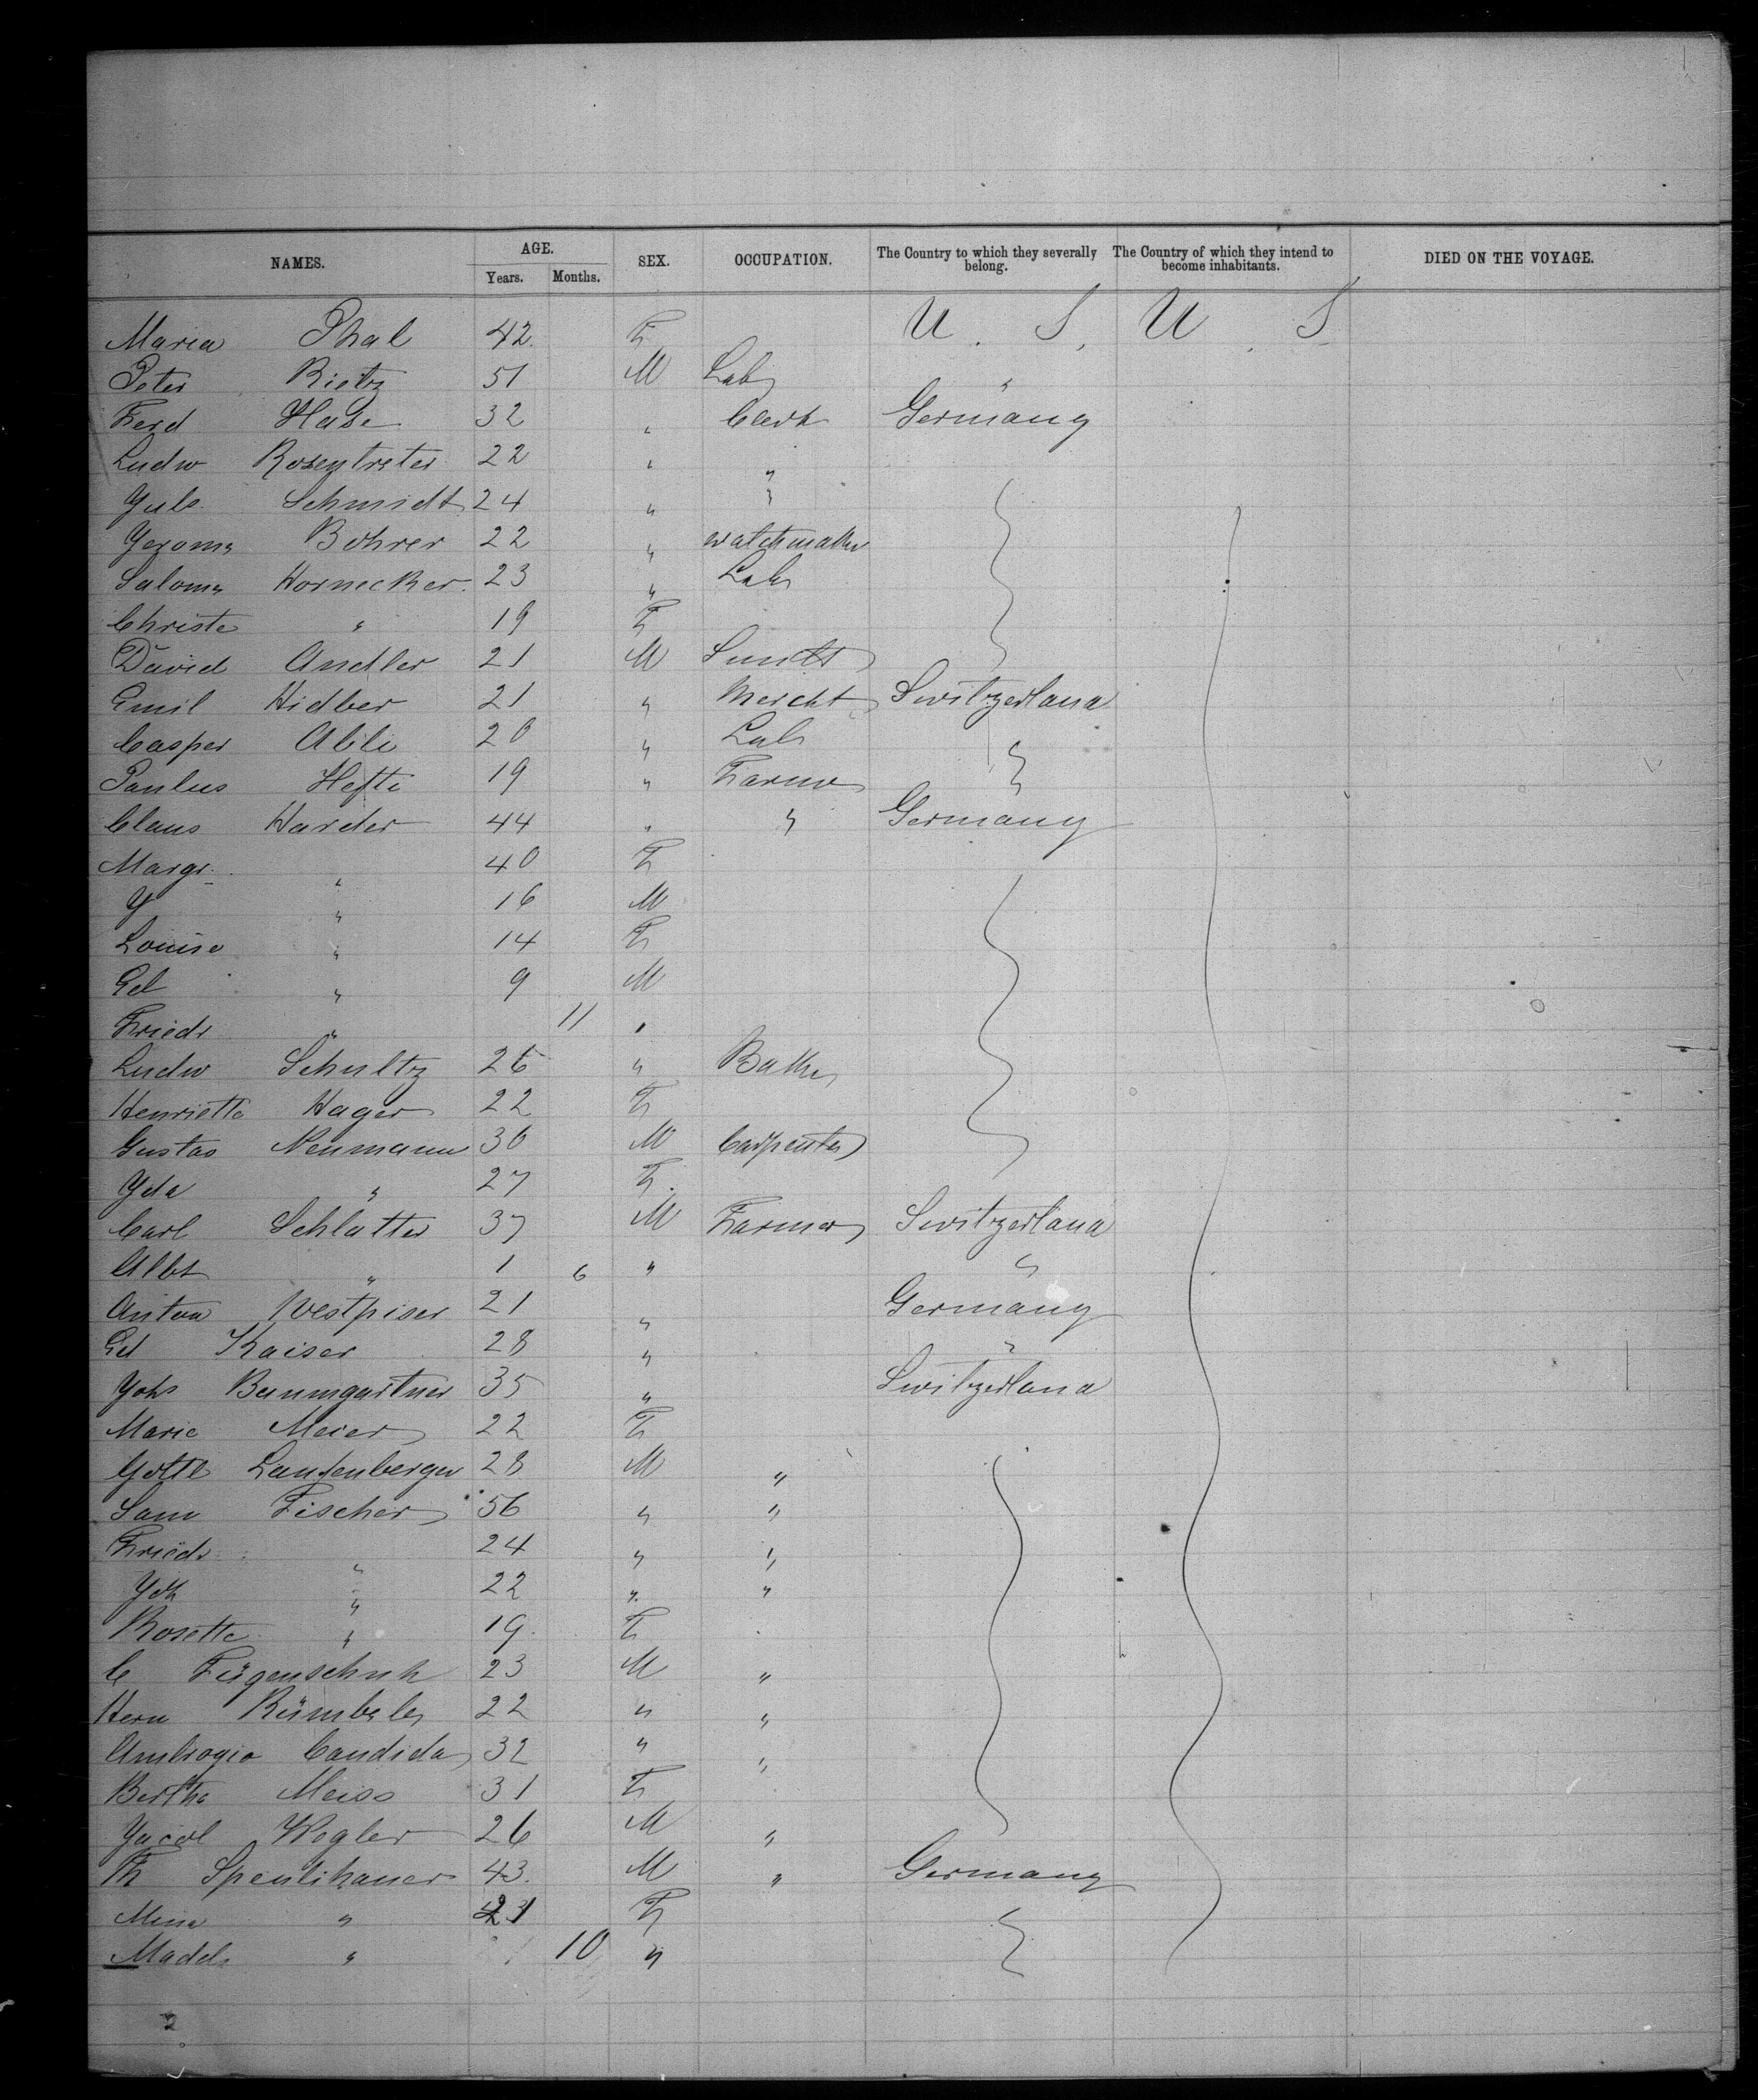 NAMES. AGE. Years. Months. SEX. OCCUPATION. The Country to which they severally belong. The Country of which they intend to become inhabitants. DIED ON THE VOYAGE.
Maria Phal 42 F U. S. U. S.
Peter Rietz 51 M Labr "
Ferd Hase 32 " Clerk Germany
Ludw Rosentreter 22 " "
Juls Schmidt 24 " "
Jerome Bohrer 22 " watchmaker
Salomn Hornecker 23 " Labr
Christe " 19 F
David Andler 21 M Smith
Emil Hidber 21 " Mercht Switzerland
Casper Abli 20 " Labr "
Paulus Hefti 19 " Farmer "
Claus Harder 44 " " Germany
Margr. " 40 F
J " 16 M
Louise " 14 F
Ed " 9 M
Friedr " 11 "
Ludw Schultz 26 " Baker
Henriette Hager 22 F
Gustav Neumann 30 M Carpenter
Ida " 27 F
Carl Schlatter 37 M Farmer Switzerland
Albt " 1 6 " "
Anton Westpiser 21 " Germany
Ed Kaiser 28 " "
Johs Baumgartner 35 " Switzerland
Marie Meier 22 F
Gottl Laufenberger 28 M "
Sam Fischer 56 " "
Friedr " 24 " "
Joh " 22 " "
Rosette " 19 F
C Fügenschuh 23 M "
Herm Rümbele 22 " "
Ambrogio Candida 32 " "
Bertha Meiss 31 F
Jacob Wegler 26 M "
Th Spenlihauer 43 M " Germany
Mina " 21 F
Madel " 10 "
2